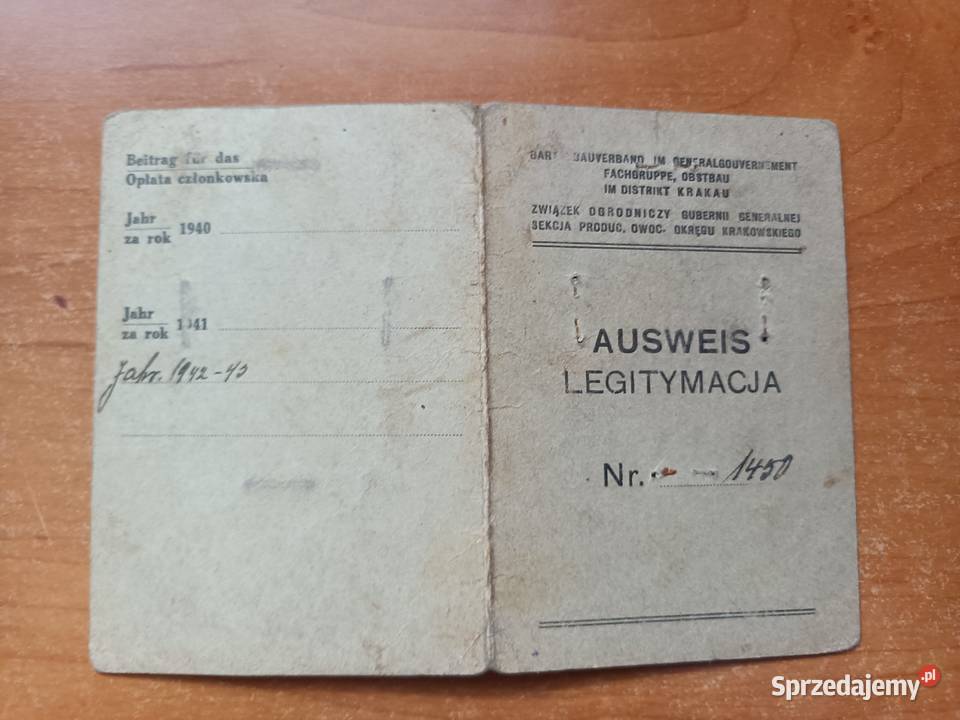 Beitrag für das
Opłata członkowska
Jahr
za rok 1940
Jahr
za rok 1941
Jahr. 1942-43
BAUVERBAND IM GENERALGOUVERNEMENT
FACHGRUPPE, OBSTBAU
IM DISTRIKT KRAKAU
ZWIĄZEK OGRODNICZY GUBERNII GENERALNEJ
SEKCJA PRODUC. OWOC. OKRĘGU KRAKOWSKIEGO
AUSWEIS
LEGITYMACJA
Nr. 1450
Sprzedajemy.pl